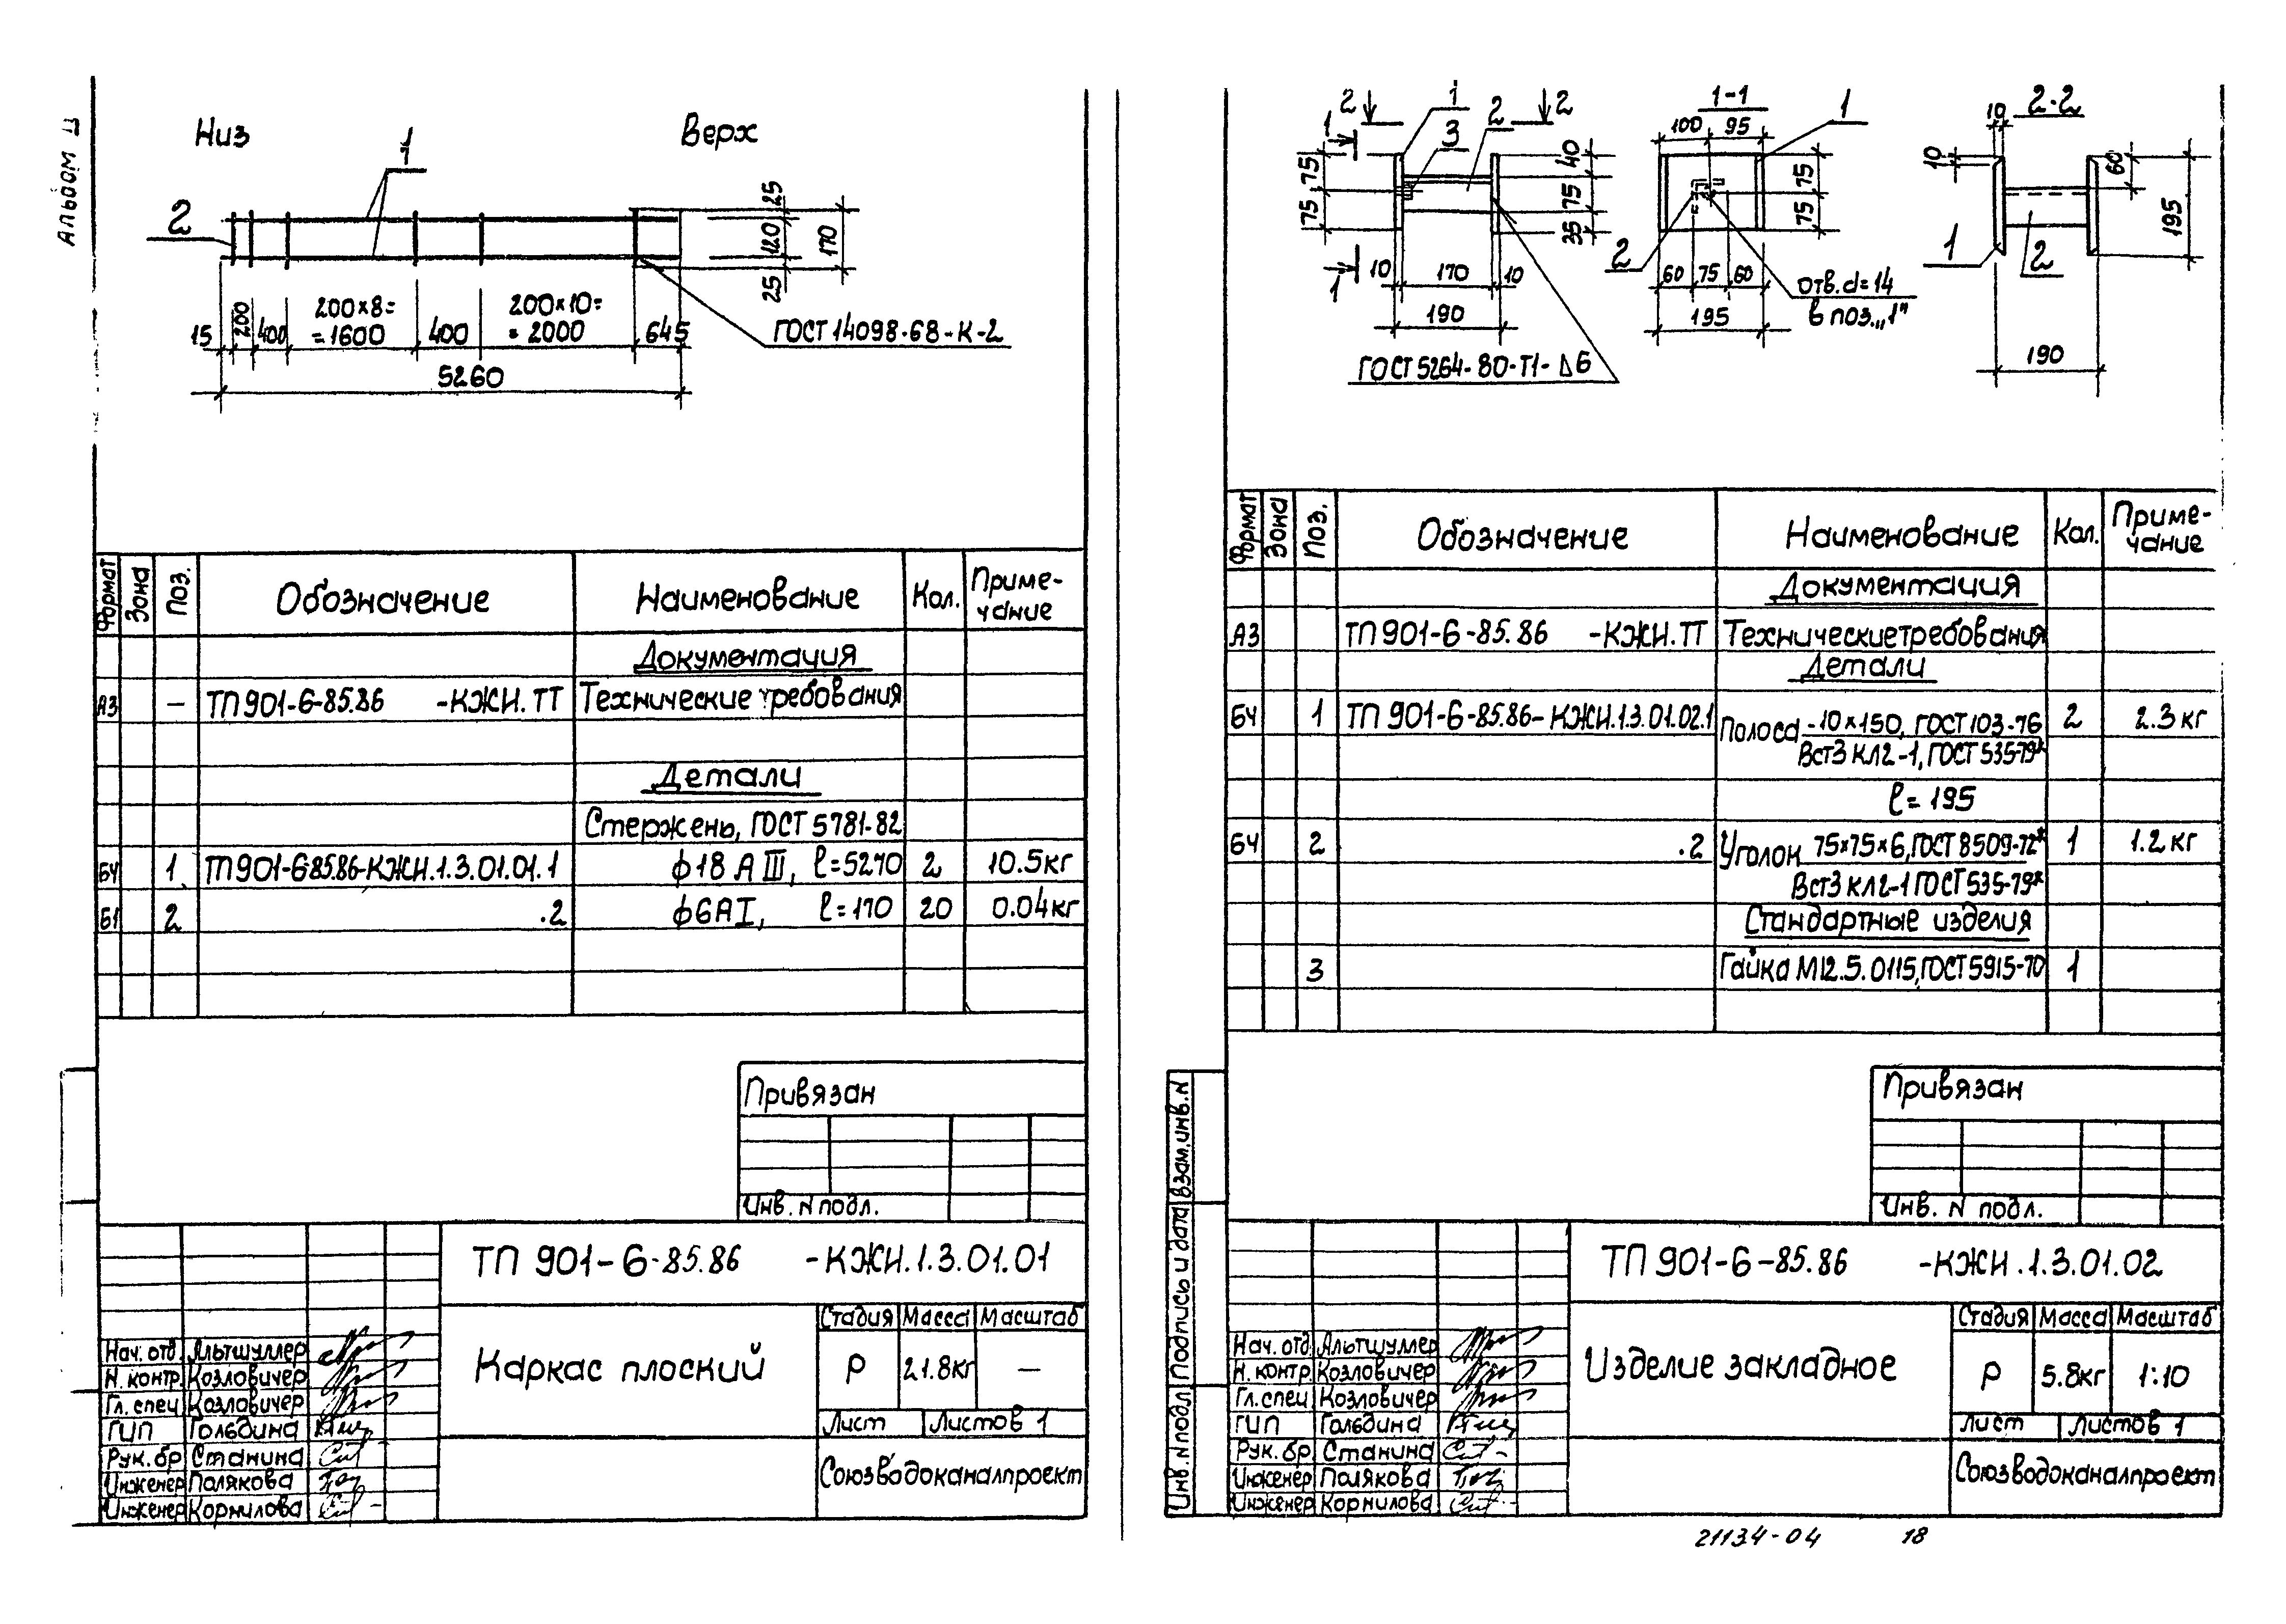 Альбом
Низ
Верх
1
2
25
120
25
170
15
200
400
200×8=
=1600
400
200×10=
=2000
645
5260
ГОСТ 14098-68-К-2
Формат
Зона
Поз.
Обозначение
Наименование
Кол.
Приме-
чание
Документация
А3 — ТП 901-6-85.86 -КЖИ.ТТ Технические требования
Детали
Стержень, ГОСТ 5781-82
БЧ 1 ТП901-6-85.86-КЖИ.1.3.01.01.1 ϕ18 А III, ℓ=5270 2 10.5кг
Б1 2 .2 ϕ6АI, ℓ=170 20 0.04кг
Привязан
Инв. N подл.
ТП 901-6-85.86 -КЖИ.1.3.01.01
Каркас плоский
Стадия Масса Масштаб
Р 21.8кг —
Лист Листов 1
Союзводоканалпроект
Нач. отд. Альтшуллер
Н. контр. Козловичер
Гл. спец Козловичер
ГИП Гольдина
Рук. бр Станина
Инженер Полякова
Инженер Корнилова
2 1 2 2
1 3
75
75
40
75
35
1
10 170 10
190
ГОСТ 5264-80-Т1-Δ6
1-1
100 95
1
75
75
2
60 75 60
195
отв. d=14
в поз. „1"
2-2
10
10
60
195
1
2
190
Формат
Зона
Поз.
Обозначение
Наименование
Кол.
Приме-
чание
Документация
А3 ТП 901-6-85.86 -КЖИ.ТТ Технические требования
Детали
БЧ 1 ТП 901-6-85.86-КЖИ.1.3.01.02.1 Полоса -10×150, ГОСТ 103-76 2 2.3 кг
Вст3 кл2-1, ГОСТ 535-79*
ℓ= 195
БЧ 2 .2 Уголок 75×75×6, ГОСТ 8509-72* 1 1.2 кг
Вст3 кл2-1 ГОСТ 535-79*
Стандартные изделия
3 Гайка М12.5.0115, ГОСТ 5915-70 1
Привязан
Инв. N подл.
Взам.инв.N
Подпись и дата
Инв. N подл
ТП 901-6-85.86 -КЖИ.1.3.01.02
Изделие закладное
Стадия Масса Масштаб
Р 5.8кг 1:10
Лист Листов 1
Союзводоканалпроект
Нач. отд. Альтшуллер
Н. контр. Козловичер
Гл. спец Козловичер
ГИП Гольдина
Рук. бр. Станина
Инженер Полякова
Инженер Корнилова
21134-04 18